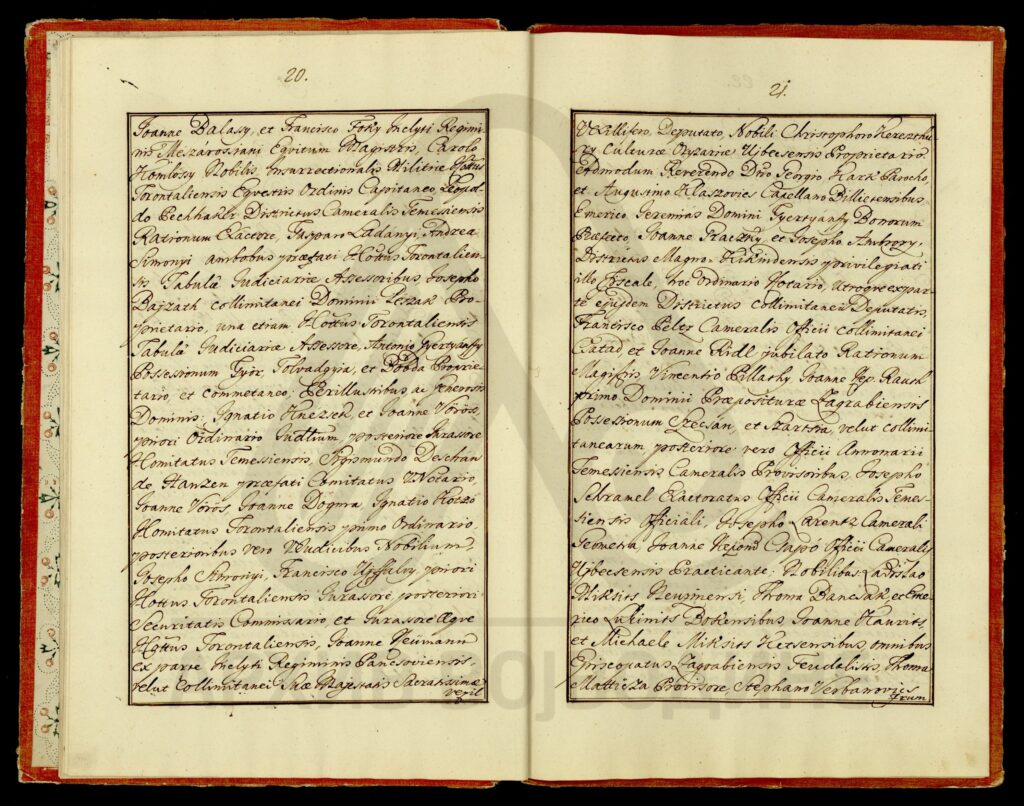 20.
Joanne Balasy, et Francisco Foky Inclyti Regimi-
nis Mészárosiani Equitum Magistris, Carolo
Homlossy Nobilis Insurrectionalis Militiæ Hottus
Torontaliensis Equestris Ordinis Capitaneo, Leopol-
do Pechhaker Districtus Cameralis Temessiensis
Rationum Exactore, Gasparo Ladányi, Andrea
Simonyi ambobus præfati Hottus Torontalien-
sis Tabulæ Judiciariæ Assessoribus Josepho
Bajzath collimitanei Dominii Leszak Pro-
prietario, una etiam Hottus Torontaliensis
Tabulæ Judiciariæ Assessore, Antonio Gyertyánffy
Possessionum Györ, Tolvadgyia, et Bóbda Proprie-
tario, et commetaneo, Perillustribus ac Generosis
Dominis, Ignatio Knezsek, et Joanne Vörös,
priori Ordinario Judlium posteriore Jurassore
Comitatus Temessiensis, Sigismundo Deschan
de Hanzen præfati Comitatus V Notario,
Joanne Vörös, Joanne Dogma, Ignatio Kotzó
Comitatus Torontaliensis primo Ordinario,
posterioribus vero V Judicibus Nobilium,
Josepho Simonyi, Francisco Ujffalvy priori
Hottus Torontaliensis Jurassore posteriori
Securitatis Commissario, et Jurassore Æque
Hottus Torontaliensis, Joanne Neümann
ex parte Inclyti Regiminis Pancsoviensis,
velut Collimitanei Suæ Majestatis Sacratissimæ
Vexil
21.
Vexillifero, Deputato, Nobili Christophoro Kereszthu-
ry Culturæ Oryzariæ Ujbecsensis Proprietario
Admodum Reverendo Dno Georgio Hark Parocho,
et Augustino Klaszovics Capellano Billietensibus
Emerico Jeremias Domini Gyertyánfy Bonorum
Præfecto, Joanne Kraczky, et Josepho Ambrozy,
Districtus Magno-Kikindensis privilegiati
ille Fiscale, hoc Ordinario Notario, utroque ex par-
te ejusdem Districtus Collimitanei Deputatis,
Francisco Peley Cameralis Officii collimitanei
Csatád, et Joanne Ridl jubilato Rationum
Magistris Vincentio Pillathy, Joanne Nep. Rauth
primo Dominii Præposituræ Zagrabiensis
Possessionum Szécsán, et Szartsa, velut collimi-
tanearum posteriore vero Officii Annonarii
Temessiensis Cameralis Provisoribus, Josepho
Schramel Exactoratus Officii Cameralis Temes-
siensis Officiali, Josepho Larentz Camerali
Geometra, Joanne Nepom. Csapó Officii Cameralis
Ujbecsensis Practicante. Nobilibus Ladislao
Miksits Neuzinensi, Thoma Bancsak et Eme-
rico Lukinits Bokensibus Joanne Haurits
et Michaele Miksits Kecsensibus, omnibus
Episcopatus Zagrabiensis Feudalistis, Thoma
Matticza Provisore, Stephano Verbanovics
Frum